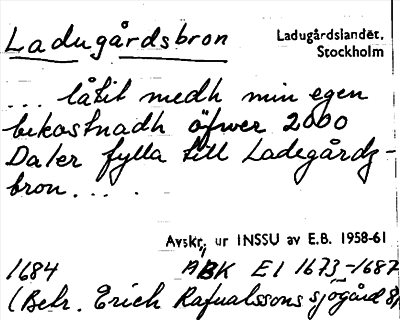 Ladugårdsbron
Ladugårdslandet,
Stockholm
... låtit medh min egen
bekostnadh öfwer 2000
Daler fylla till Ladegårdz-
bron....
Avskr. ur INSSU av E.B. 1958-61
1684 ABK E I 1673-1687
(Betr. Erich Rafualssons sjögård 8)